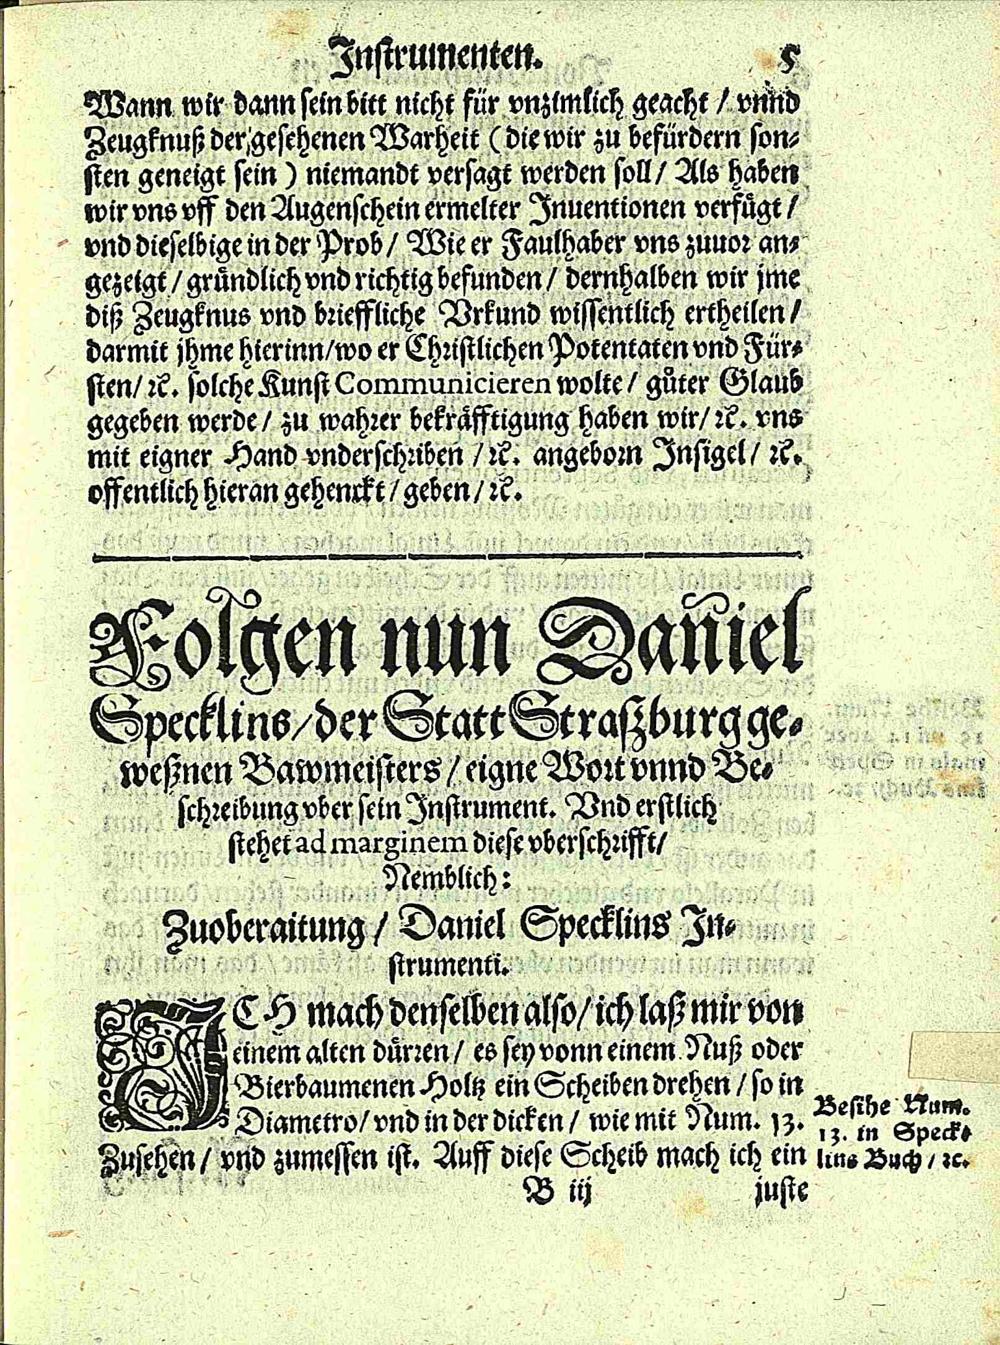 Instrumenten. 5
Wann wir dann sein bitt nicht für vnzimlich geacht / vnnd
Zeugknuß der gesehenen Warheit ( die wir zu befürdern son⸗
sten geneigt sein ) niemandt versagt werden soll / Als haben
wir vns vff den Augenschein ermelter Inuentionen verfügt /
vnd dieselbige in der Prob / Wie er Faulhaber vns zuuor an⸗
gezeigt / gründlich vnd richtig befunden / dernhalben wir jme
diß Zeugknus vnd brieffliche Vrkund wissentlich ertheilen /
darmit jhme hierinn / wo er Christlichen Potentaten vnd Für⸗
sten / ꝛc. solche Kunst Communicieren wolte / gůter Glaub
gegeben werde / zu wahrer bekräfftigung haben wir / ꝛc. vns
mit eigner Hand vnderschriben / ꝛc. angeborn Insigel / ꝛc.
offentlich hieran gehenckt / geben / ꝛc.
Folgen nun Daniel
Specklins / der Statt Straßburg ge⸗
weßnen Bawmeisters / eigne Wort vnnd Be⸗
schreibung vber sein Instrument. Vnd erstlich
stehet ad marginem diese vberschrifft /
Nemblich:
Zuoberaitung / Daniel Specklins In⸗
strumenti.
ICH mach denselben also / ich laß mir von
einem alten dürren / es sey vonn einem Nuß oder
Bierbaumenen Holtz ein Scheiben drehen / so in
Diametro / vnd in der dicken / wie mit Num. 13.
Zusehen / vnd zumessen ist. Auff diese Scheib mach ich ein
Besihe Num.
13. in Speck⸗
lins Buch / ꝛc.
B iij juste